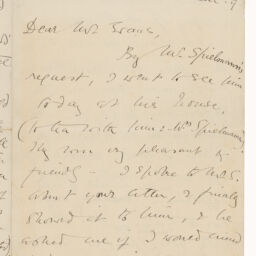 Dear Mr Evans,
By Mr Spielmann's
request, I went to see him
today at his house,
(to tea with him & Mrs Spielmann)
They were very pleasant &
friendly – I spoke to Mr S.
about your letter, & finally
showed it to him, & he
asked me if I would